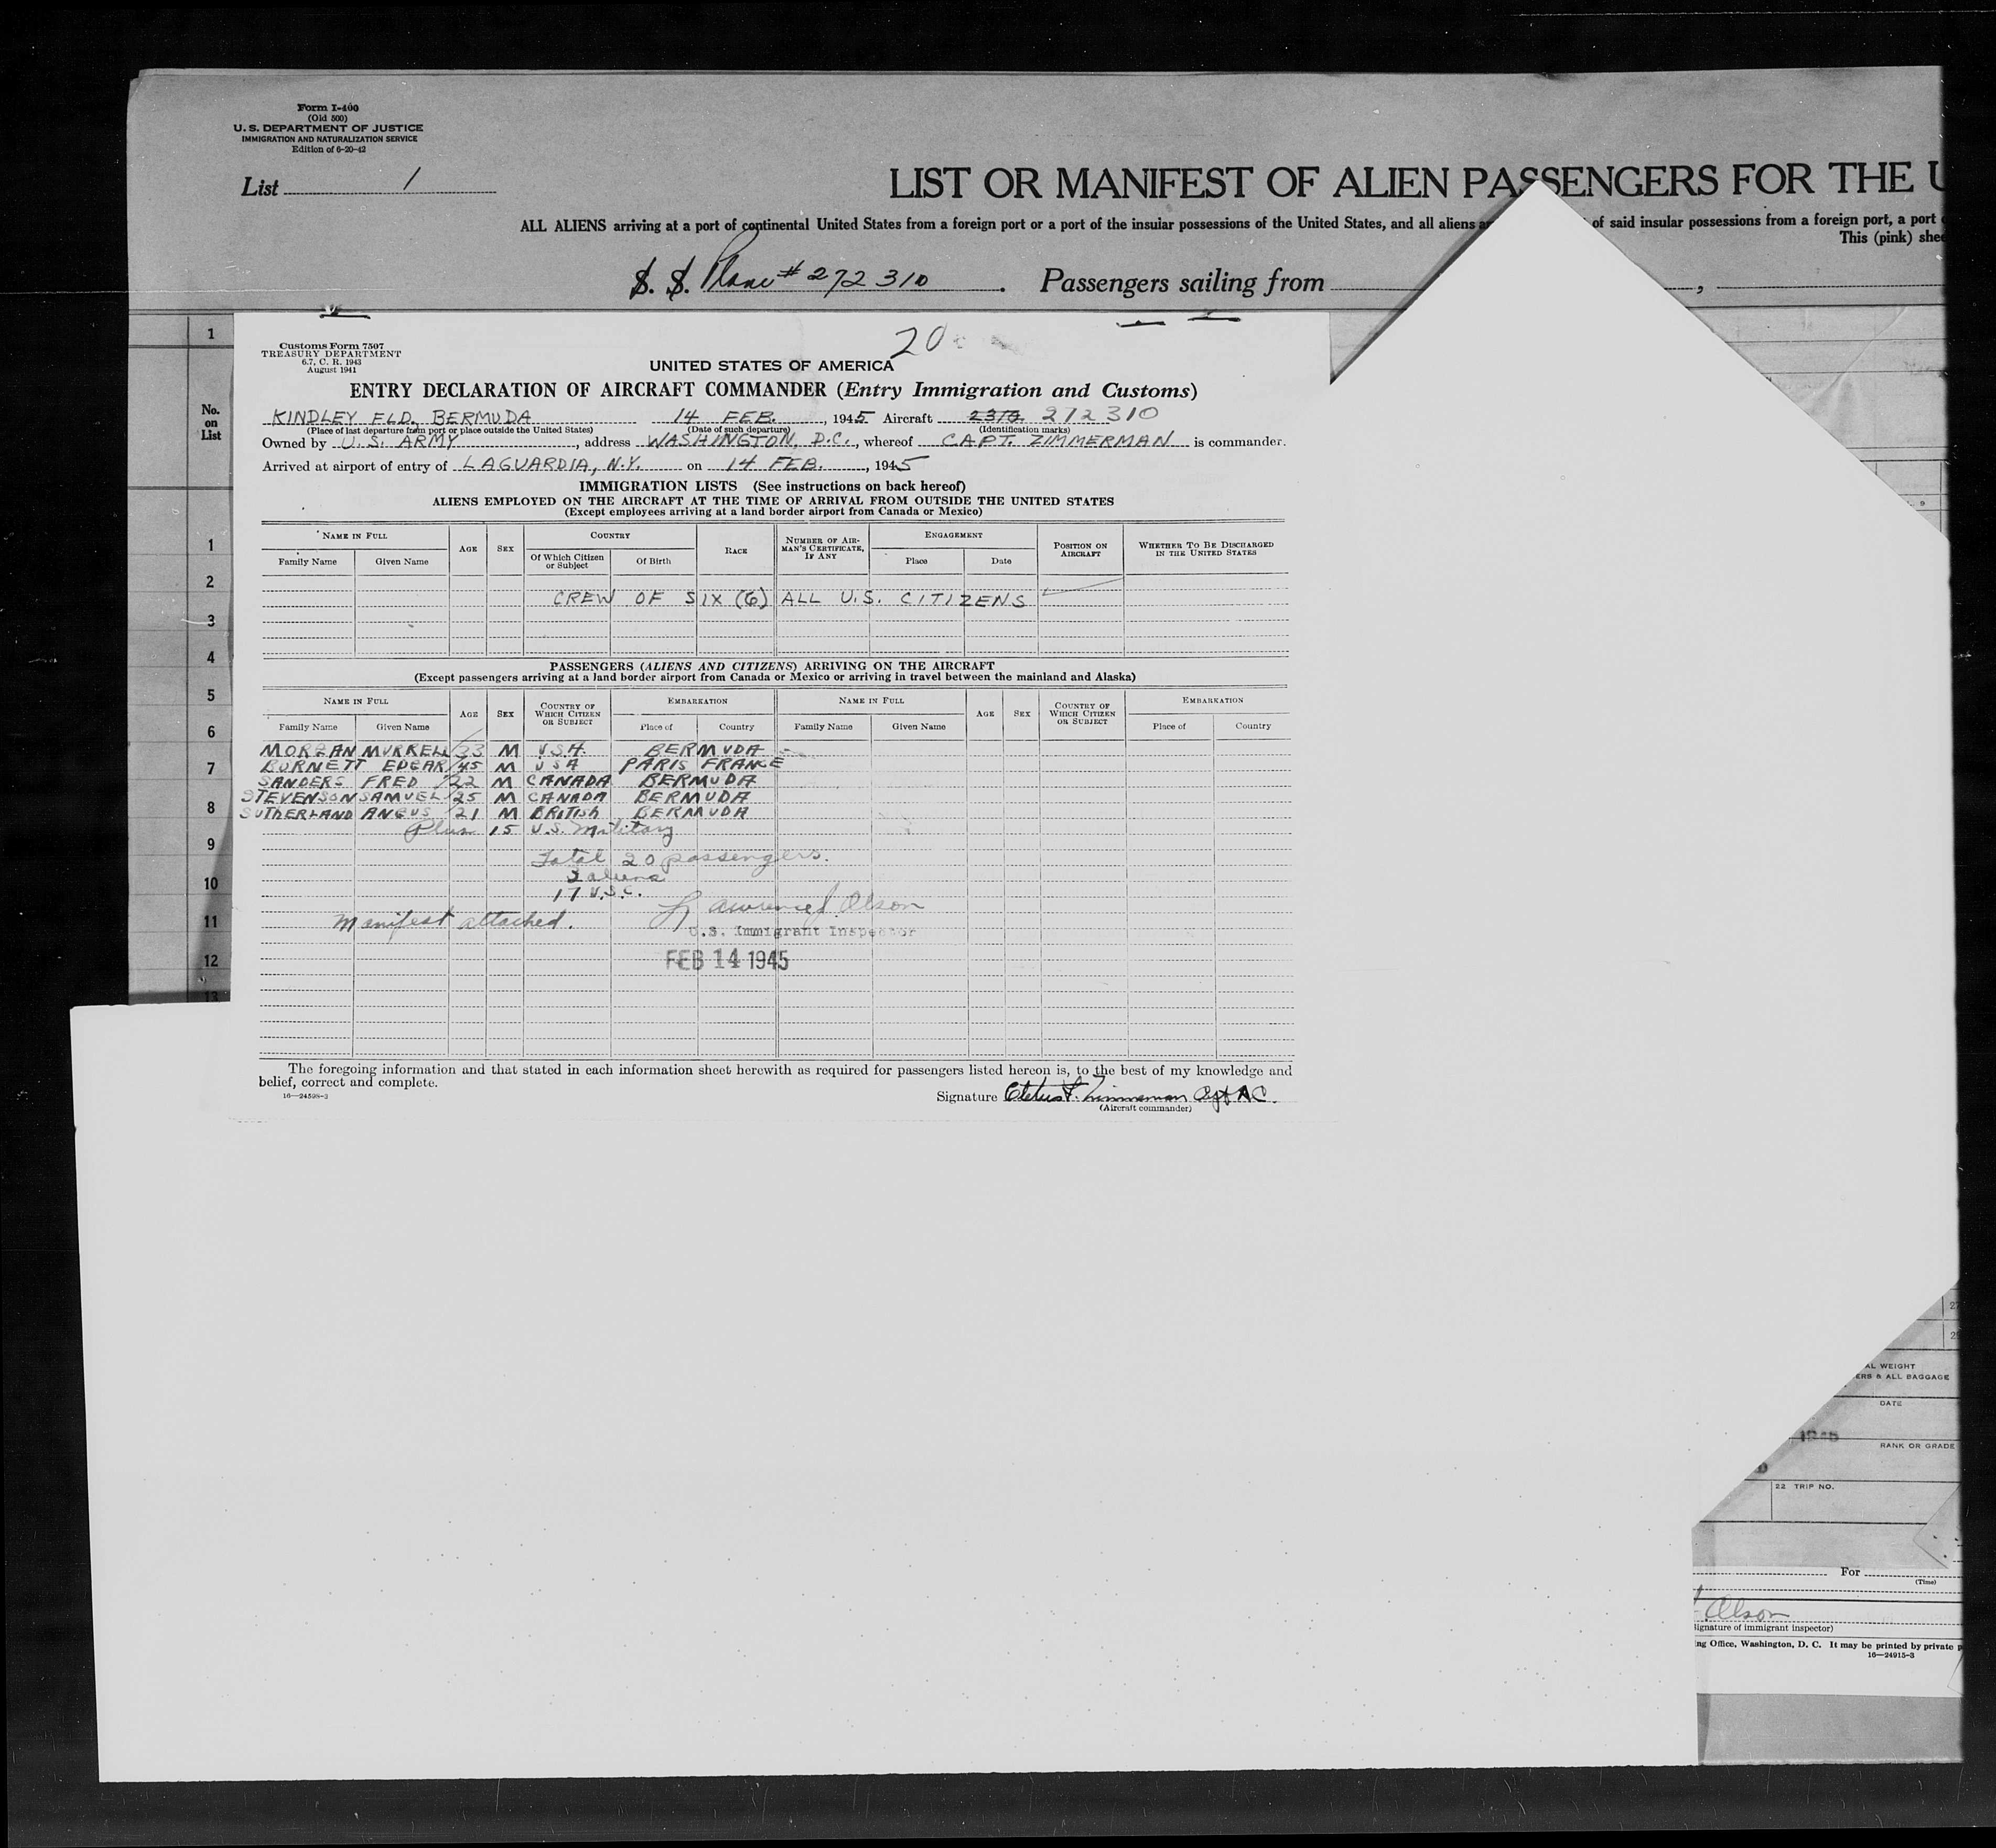 Form I-400
(Old 500)
U. S. DEPARTMENT OF JUSTICE
IMMIGRATION AND NATURALIZATION SERVICE
Edition of 6-20-42
List 1
LIST OR MANIFEST OF ALIEN PASSENGERS FOR THE U
ALL ALIENS arriving at a port of continental United States from a foreign port or a port of the insular possessions of the United States, and all aliens ar of said insular possessions from a foreign port, a port
This (pink) shee
S. S. Plane # 272310 . Passengers sailing from ,
1
No.
on
List
1
2
3
4
5
6
7
8
9
10
11
12
13
Customs Form 7507
TREASURY DEPARTMENT
6.7, C. R. 1943
August 1941
20
UNITED STATES OF AMERICA
ENTRY DECLARATION OF AIRCRAFT COMMANDER (Entry Immigration and Customs)
KINDLEY FLD, BERMUDA 14 FEB. , 1945 Aircraft 272310
(Place of last departure from port or place outside the United States) (Date of such departure) (Identification marks)
Owned by U.S. ARMY , address WASHINGTON, D.C. , whereof CAPT. ZIMMERMAN is commander.
Arrived at airport of entry of LAGUARDIA, N.Y. on 14 FEB. , 1945
IMMIGRATION LISTS (See instructions on back hereof)
ALIENS EMPLOYED ON THE AIRCRAFT AT THE TIME OF ARRIVAL FROM OUTSIDE THE UNITED STATES
(Except employees arriving at a land border airport from Canada or Mexico)
NAME IN FULL AGE SEX COUNTRY RACE NUMBER OF AIRMAN'S CERTIFICATE, IF ANY ENGAGEMENT POSITION ON AIRCRAFT WHETHER TO BE DISCHARGED IN THE UNITED STATES
Family Name Given Name Of Which Citizen or Subject Of Birth Place Date
CREW OF SIX (6) ALL U.S. CITIZENS
PASSENGERS (ALIENS AND CITIZENS) ARRIVING ON THE AIRCRAFT
(Except passengers arriving at a land border airport from Canada or Mexico or arriving in travel between the mainland and Alaska)
NAME IN FULL AGE SEX COUNTRY OF WHICH CITIZEN OR SUBJECT EMBARKATION NAME IN FULL AGE SEX COUNTRY OF WHICH CITIZEN OR SUBJECT EMBARKATION
Family Name Given Name Place of Country Family Name Given Name Place of Country
MORGAN MURRELL 33 M USA BERMUDA
BURNETT EDGAR 45 M USA PARIS FRANCE
SANDERS FRED 22 M CANADA BERMUDA
STEVENSON SAMUEL 25 M CANADA BERMUDA
SUTHERLAND ANGUS 21 M BRITISH BERMUDA
Plus 15 U.S. Military
Total 20 passengers.
3 aliens
17 U.S.C.
Manifest attached. Lawrence J. Olson
U.S. Immigrant Inspector
FEB 14 1945
The foregoing information and that stated in each information sheet herewith as required for passengers listed hereon is, to the best of my knowledge and
belief, correct and complete.
16—24598-3
Signature Cletus F. Zimmerman Capt AC.
(Aircraft commander)
27
AL WEIGHT
ERS & ALL BAGGAGE
DATE
1945
RANK OR GRADE
22 TRIP NO.
For
(Time)
Olson
Signature of immigrant inspector)
ing Office, Washington, D. C. It may be printed by private p
16—24915-3